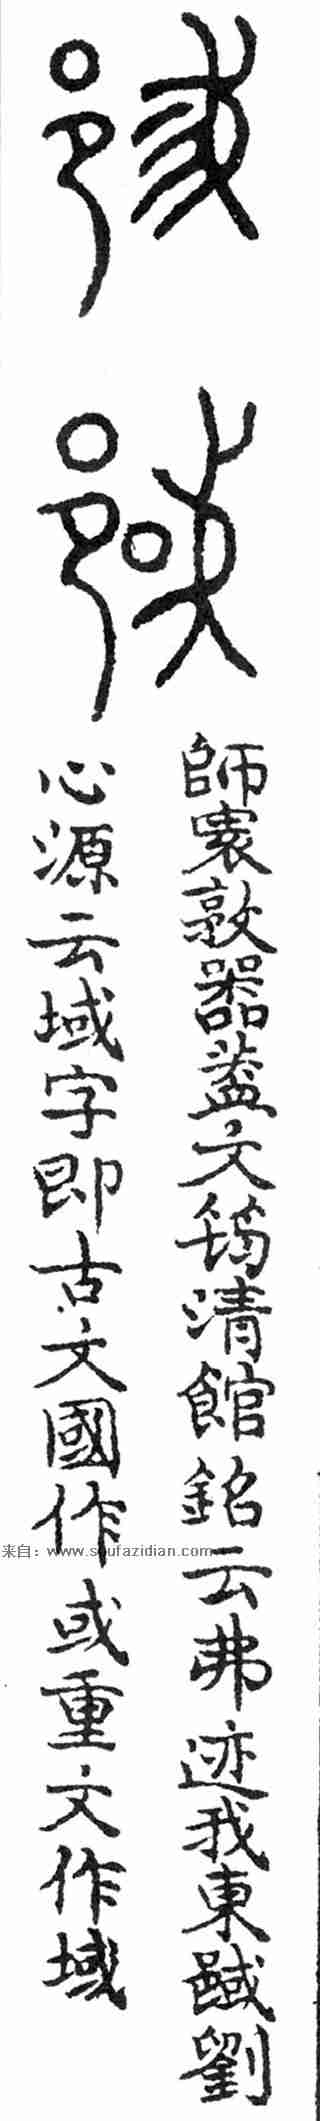 師寰敦器葢文筠清館銘云弗迹我東䧕劉
心源云域字即古文國作或重文作域
来自：www.soufazidian.com